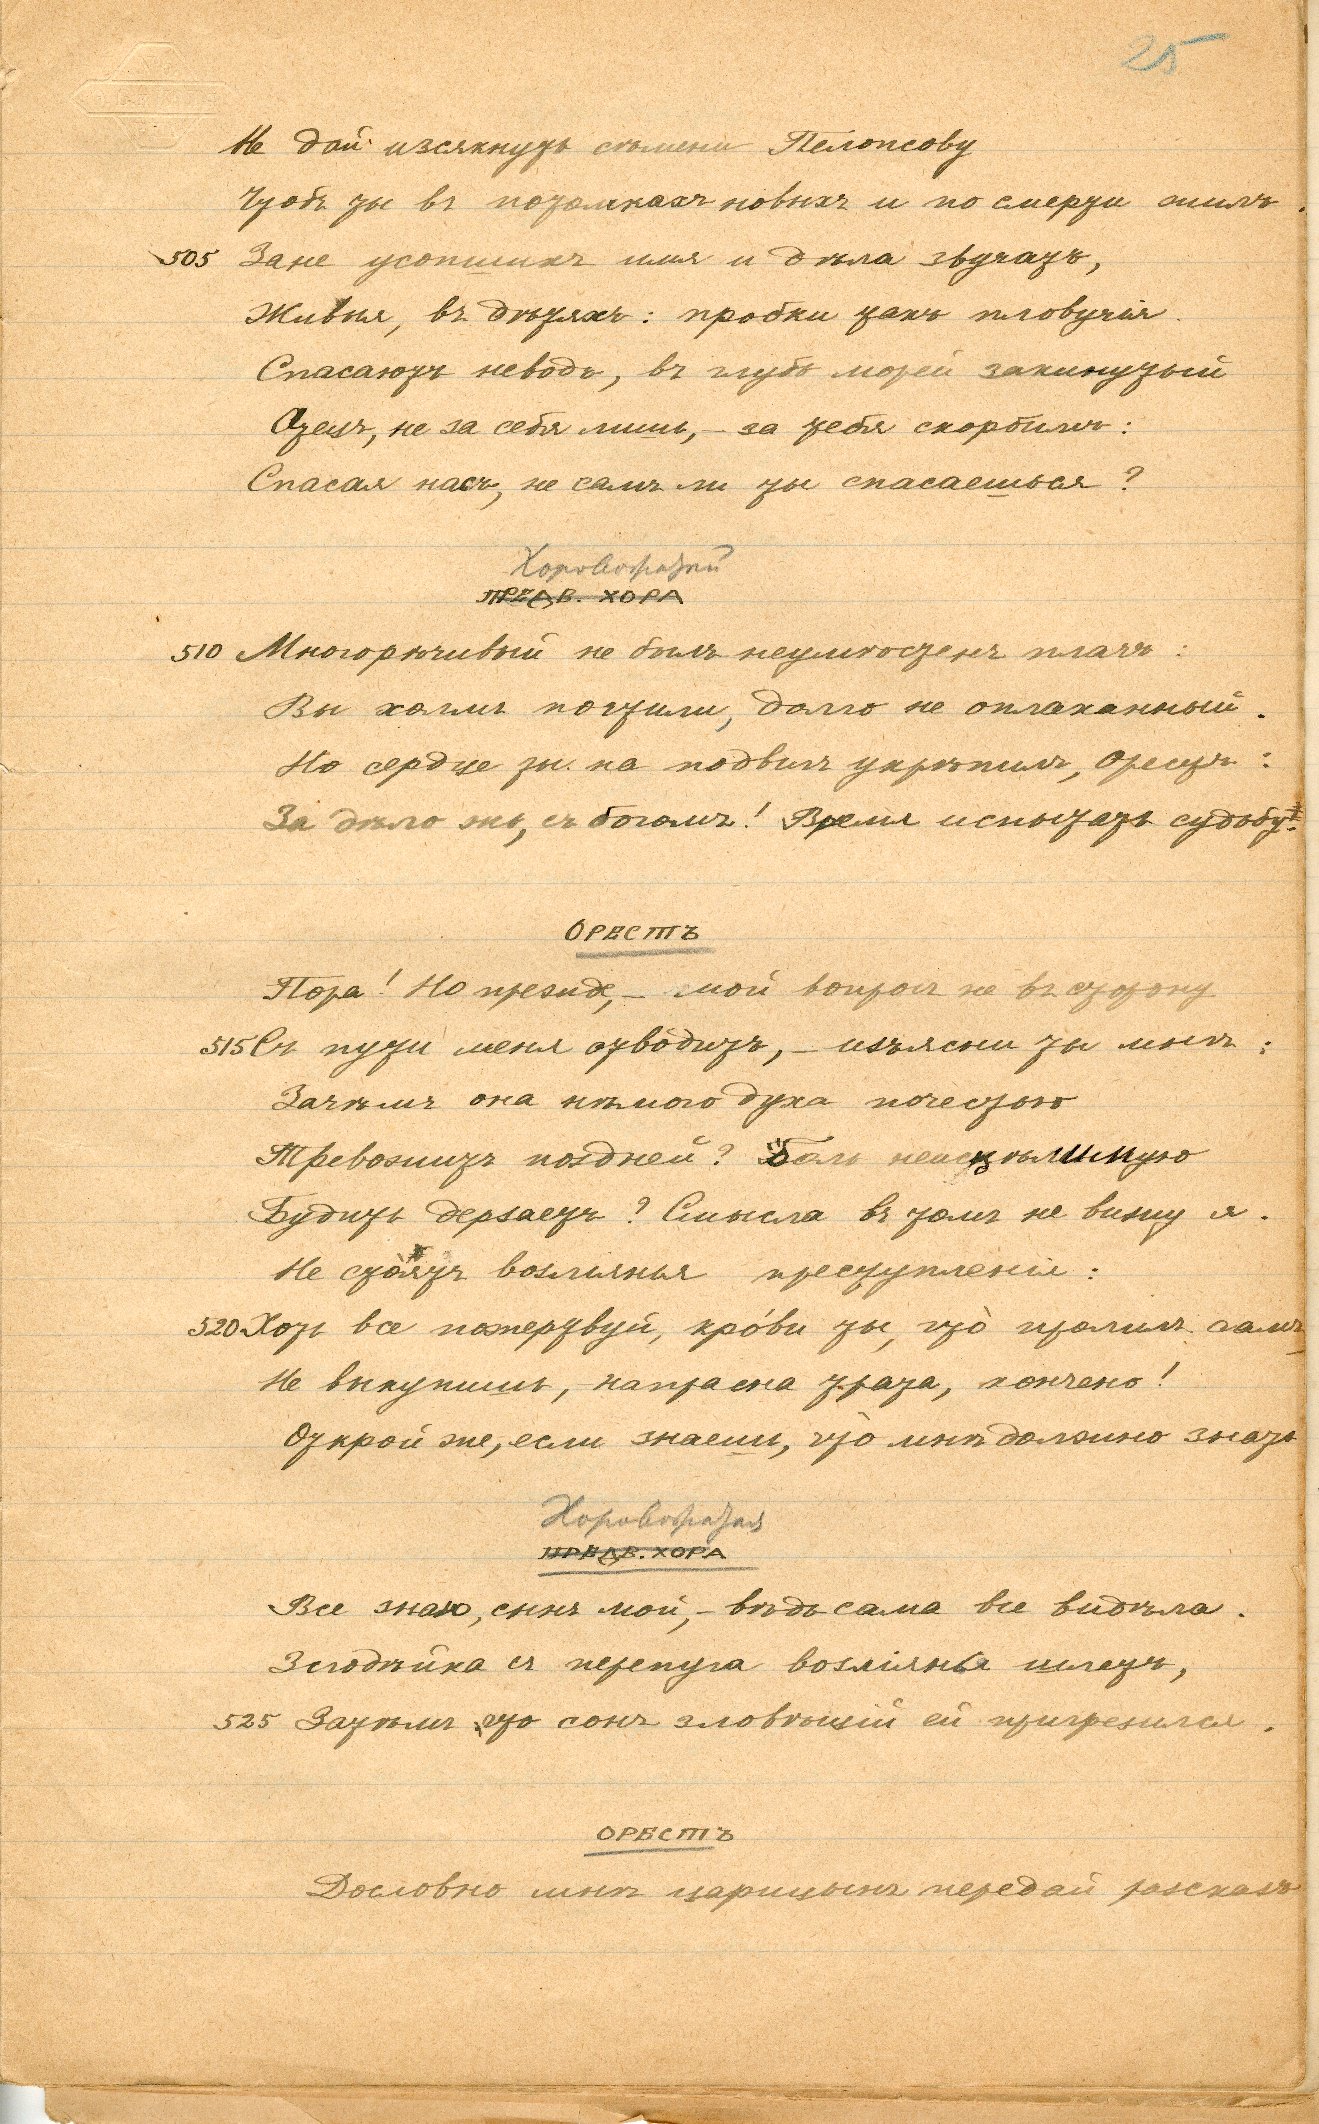 25
Не дай изсякнуть сѣмени Пелопсову
Чтобъ ты въ потомкахъ новыхъ и по смерти жилъ.
505 Зане усопшихъ имя и дѣла звучатъ,
Живыя, въ дѣтяхъ: пробки такъ пловучія
Спасаютъ неводъ, въ глубь морей закинутый
Отецъ, не за себя лишь, – за тебя скорбимъ:
Спасая насъ, не самъ ли ты спасаешься?
Хоровожатый
ПРЕДВ. ХОРА
510 Многорѣчивый не былъ неумѣстенъ плачъ:
Вы холмъ почтили, долго не оплаканный.
Но сердце ты на подвигъ укрѣпилъ, Орестъ:
За дѣло жъ, съ богомъ! Время испытать судьбу.
ОРЕСТЪ
Пора! Но прежде, – мой вопросъ не въ сторону
515 Съ пути меня отво́дитъ, – изъясни ты мнѣ:
Зачѣмъ она нѣмого духа почестью
Тревожитъ поздней? Боль неисцѣлимую
Будить дерзаетъ? Смысла въ томъ не вижу я.
Не сто́ятъ возлиянья преступленія:
520 Хоть все пожертвуй, кро́ви ты, что̀ пролилъ самъ
Не выкупишь, – напрасна трата, кончено!
Открой же, если знаешь, что̀ мнѣ должно знать
Хоровожатая
ПРЕДВ. ХОРА
Все знаю, сынъ мой, – вѣдь сама все видѣла.
Злодѣйка съ перепуга возліянья шлетъ,
525 Затѣмъ что сонъ зловѣщій ей пригрезился.
ОРЕСТЪ
Дословно мнѣ царицынъ передай разсказъ